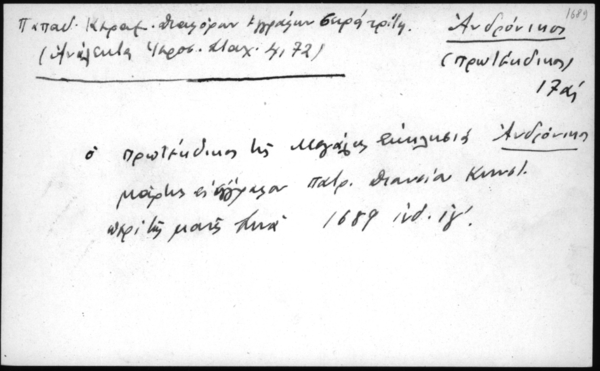 Παπαδ. Κεραμ. Διαφόρων ἐγγράφων σειρὰ τρίτη.
(Ἀνάλεκτα Ἱεροσ. Σταχ. 4, 72)
1689
Ἀνδρόνικος
(πρωτέκδικος)
17ος
ὁ πρωτέκδικος τῆς Μεγάλης Ἐκκλησίας Ἀνδρόνικος
μάρτυς εἰς ἔγγραφον πατρ. Διονυσίου Κωνστ.
περὶ τῆς μονῆς Σινᾶ 1689 ἰνδ. ιγ´.